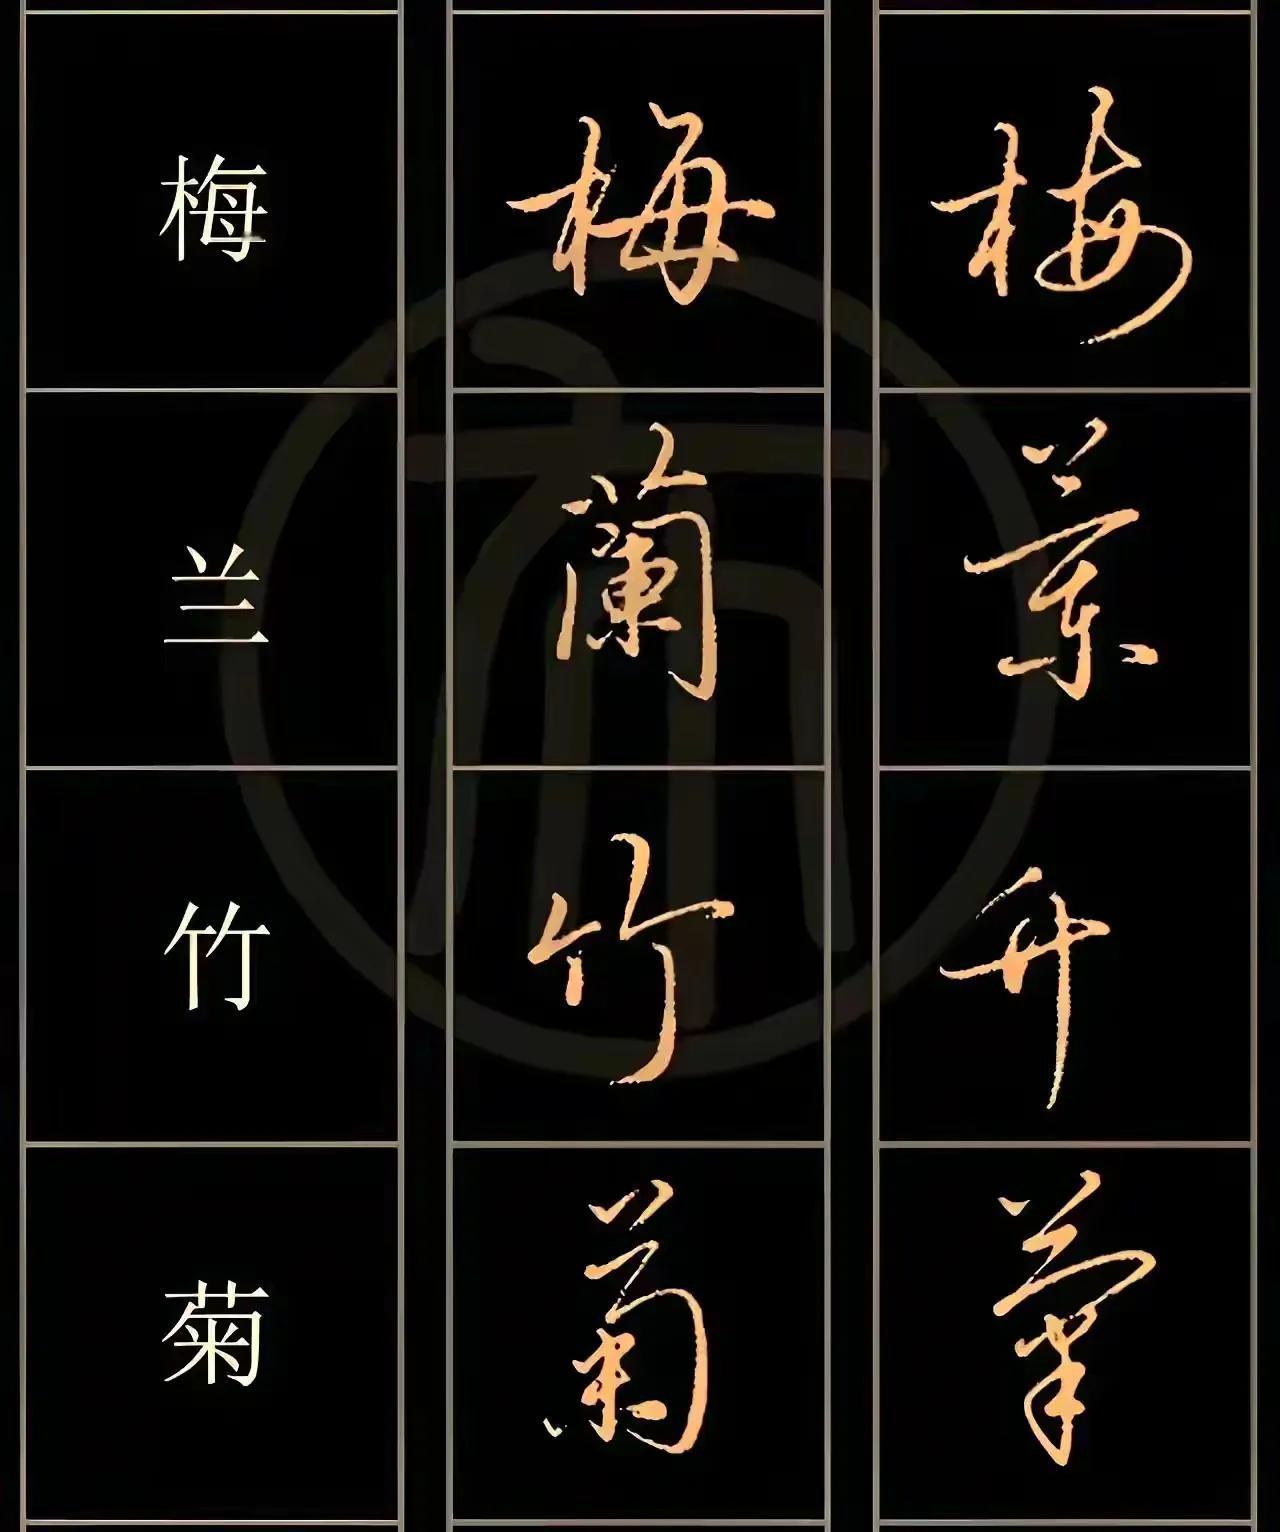 梅 梅 梅
兰 蘭 蘭
竹 竹 竹
菊 菊 菊